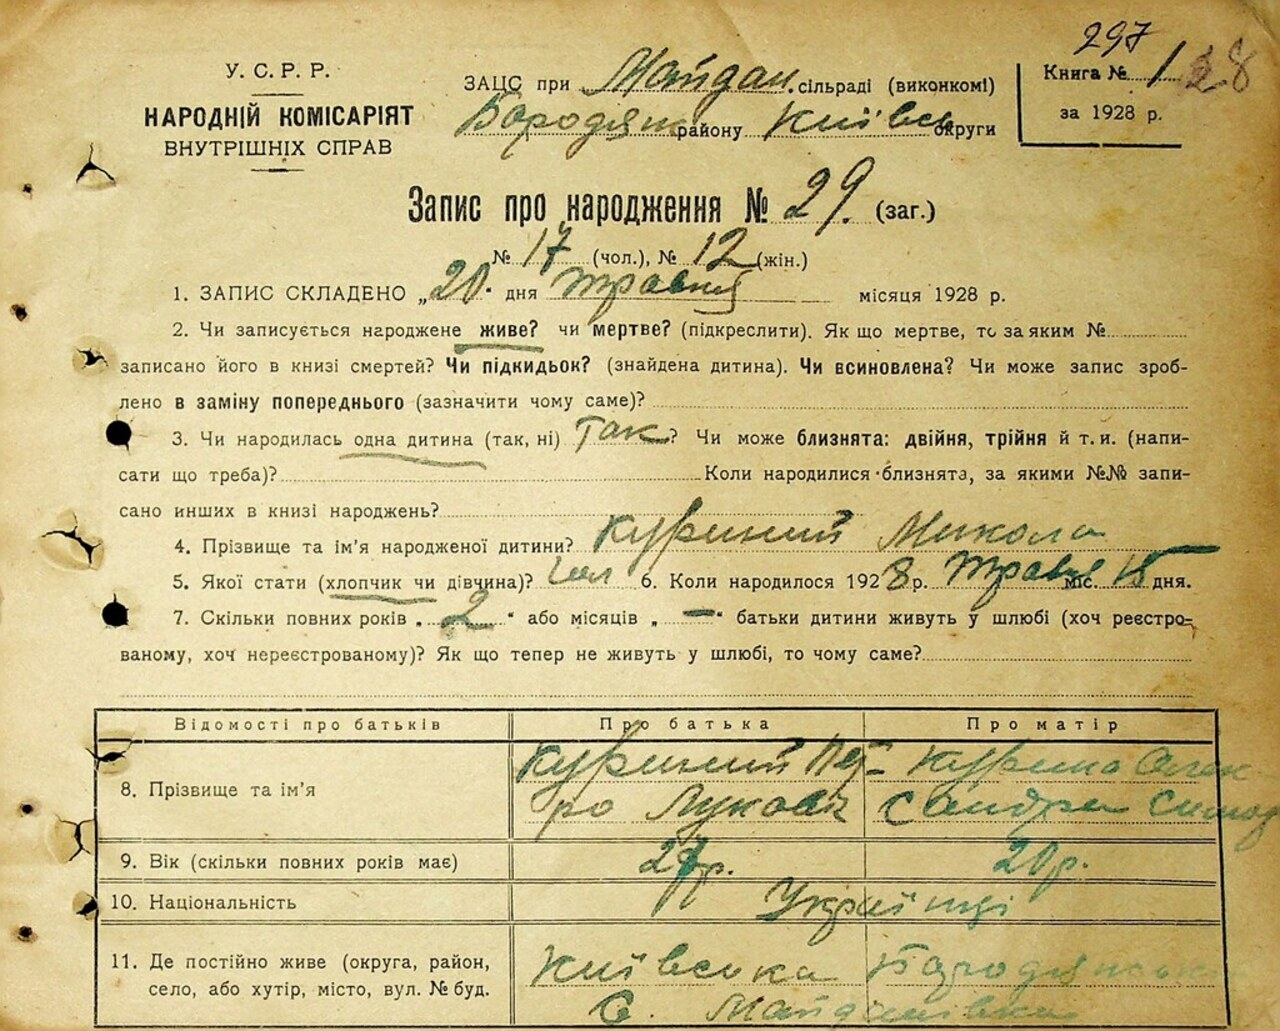 297
У. С. Р. Р.
НАРОДНІЙ КОМІСАРІЯТ
ВНУТРІШНІХ СПРАВ
ЗАЦС при Майдан. сільраді (виконкомі)
Бородян району Київсь округи
Книга № 1
за 1928 р.
Запис про народження № 29. (заг.)
№ 17 (чол.), № 12 (жін.)
1. ЗАПИС СКЛАДЕНО „20. дня травня місяця 1928 р.
2. Чи записується народжене живе? чи мертве? (підкреслити). Як що мертве, то за яким №
записано його в книзі смертей? Чи підкидьок? (знайдена дитина). Чи всиновлена? Чи може запис зроб-
лено в заміну попереднього (зазначити чому саме)?
3. Чи народилась одна дитина (так, ні) Так? Чи може близнята: двійня, трійня й т. и. (напи-
сати що треба)? Коли народилися близнята, за якими №№ запи-
сано инших в книзі народжень?
4. Прізвище та ім'я народженої дитини? Куриний Микола
5. Якої стати (хлопчик чи дівчина)? чол 6. Коли народилося 1928 р. Травня міс. 15 дня.
7. Скільки повних років „2“ або місяців „—“ батьки дитини живуть у шлюбі (хоч реєстро-
ваному, хоч нереєстрованому)? Як що тепер не живуть у шлюбі, то чому саме?
Відомості про батьків Про батька Про матір
8. Прізвище та ім'я Куриний Пет- Курина Олек
ро Лукович Сандра
9. Вік (скільки повних років має) 27р. 20р.
10. Національність Українці
11. Де постійно живе (округа, район, Київська Бородянська
село, або хутір, місто, вул. № буд. С. Майданівка